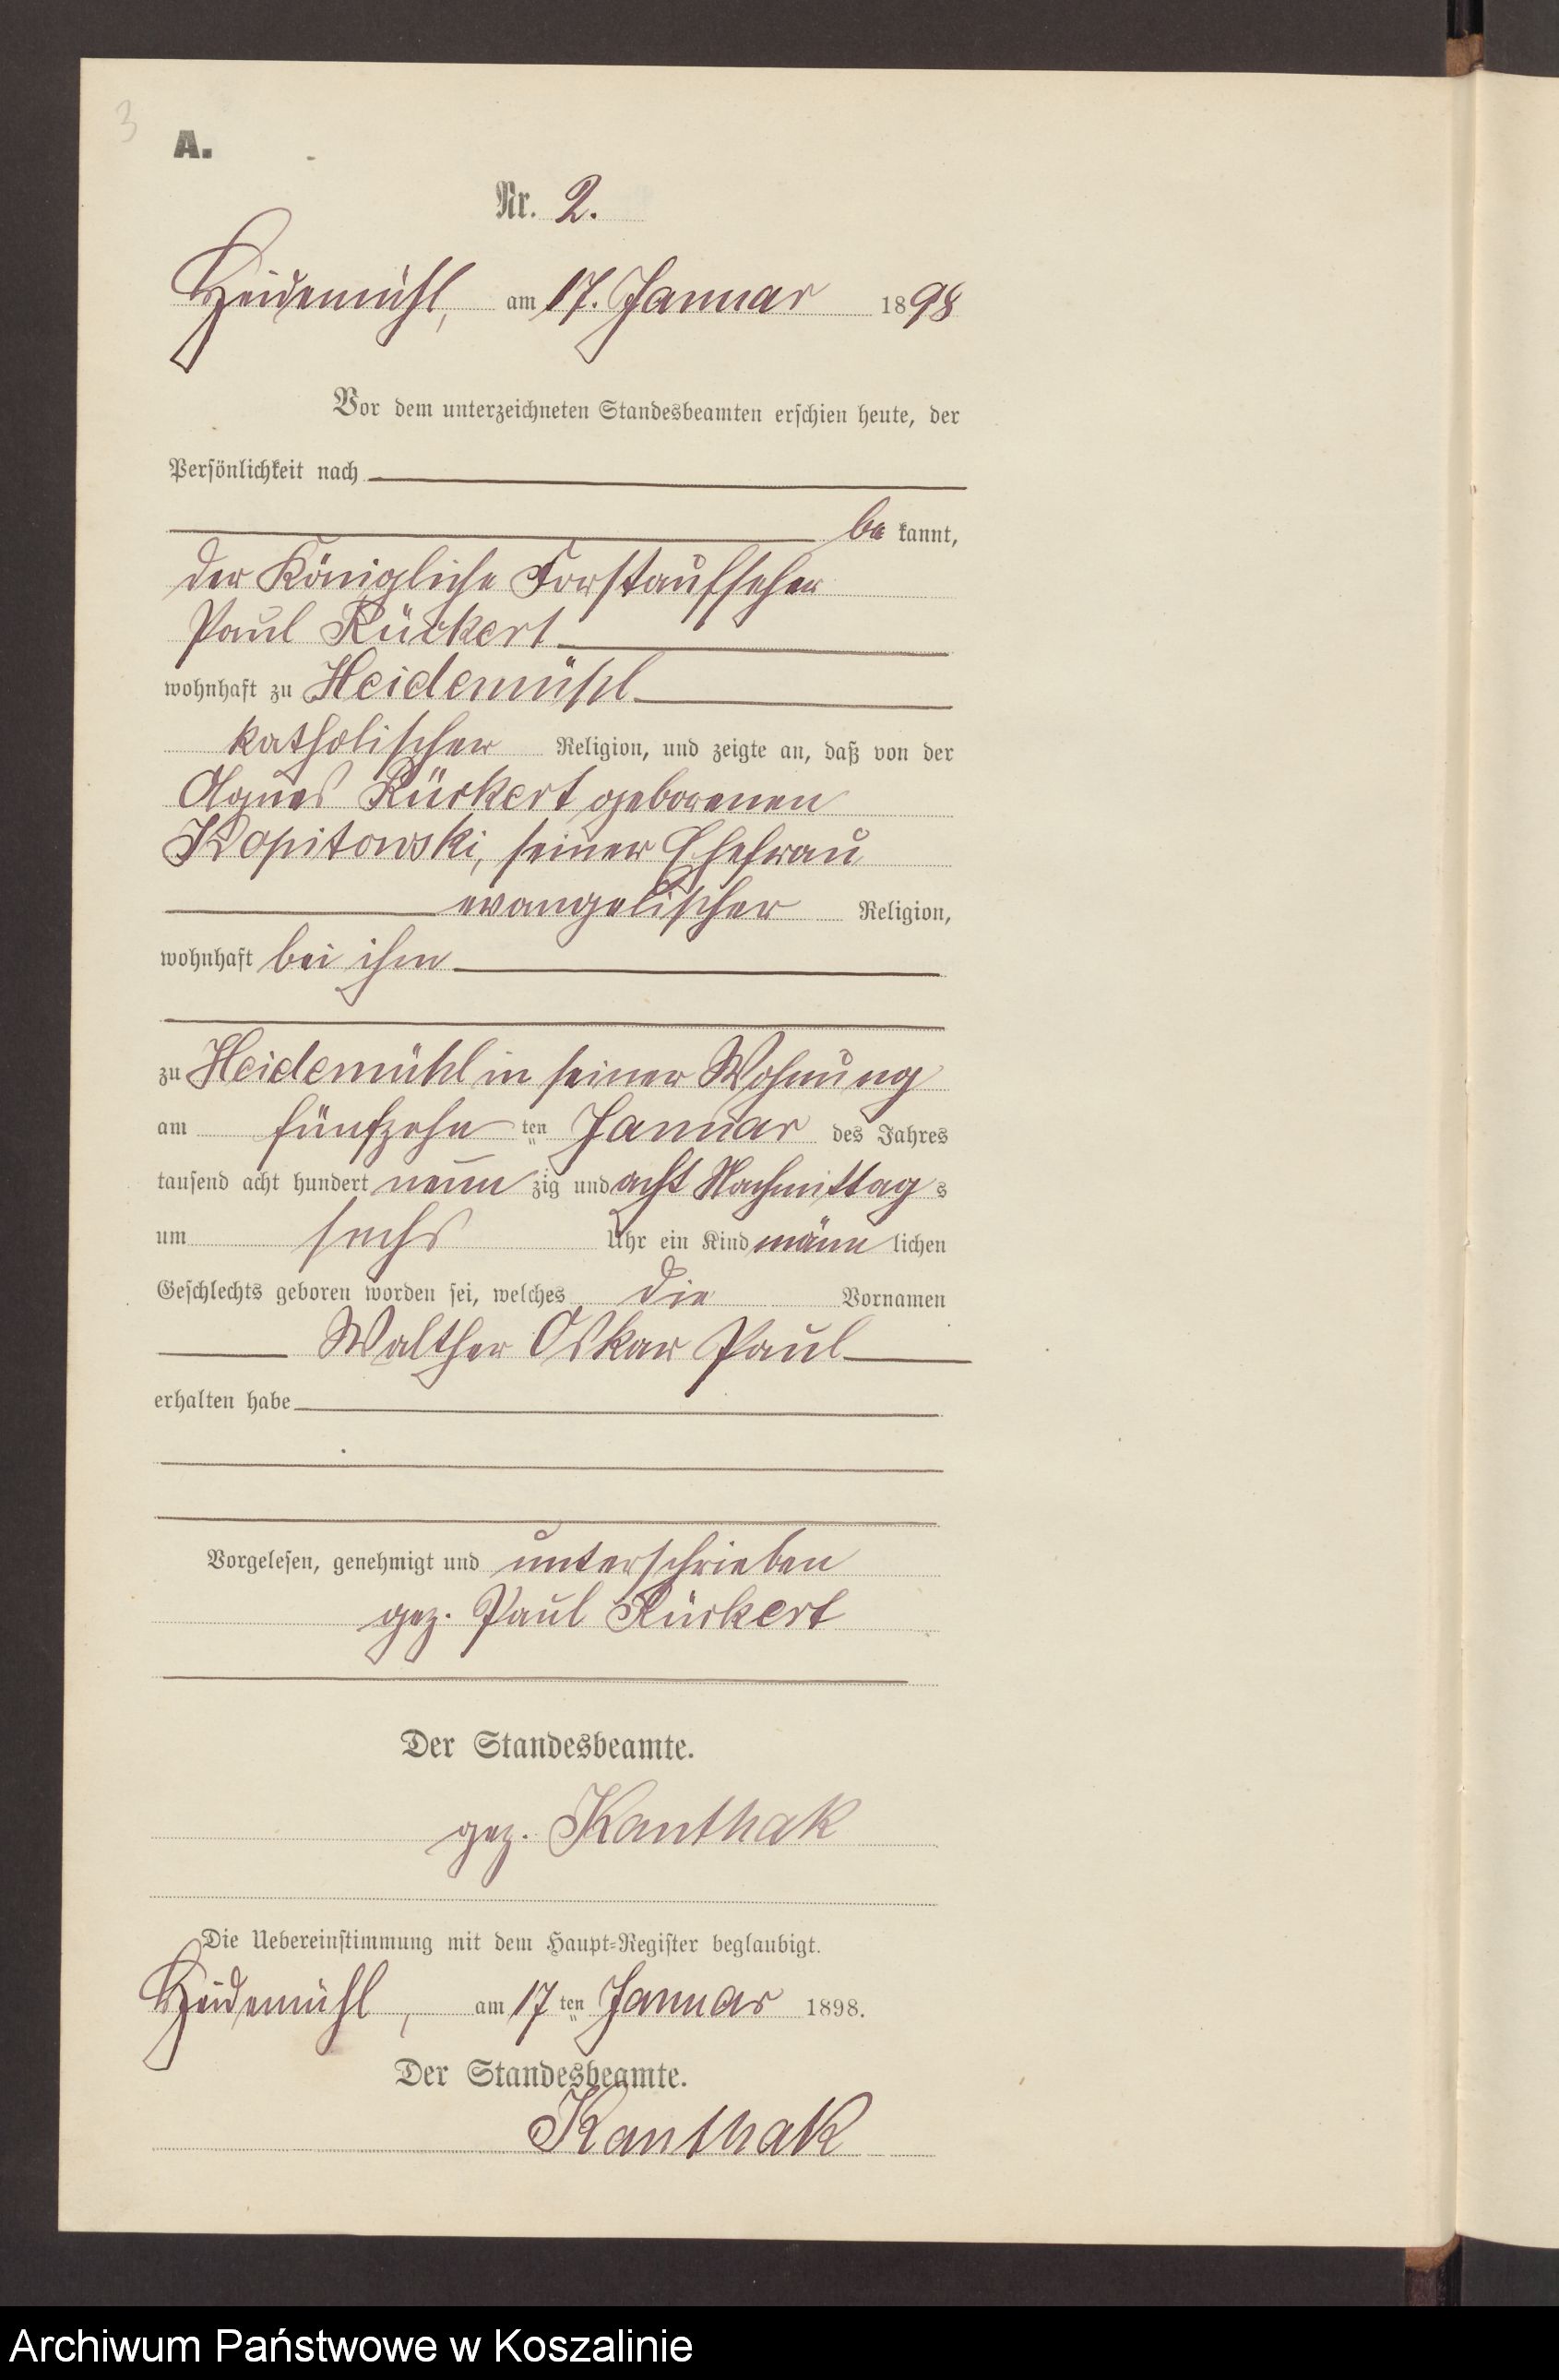 3
A.
Nr. 2.
Heidemühl, am 17. Januar 1898
Vor dem unterzeichneten Standesbeamten erschien heute, der
Persönlichkeit nach
be kannt,
der Königliche Forstaufseher
Paul Rückert
wohnhaft zu Heidemühl
katholischer Religion, und zeigte an, daß von der
Agnes Rückert geborenen
Kopitowski, seiner Ehefrau
evangelischer Religion,
wohnhaft bei ihm
zu Heidemühl in seiner Wohnung
am fünfzehn ten Januar des Jahres
tausend acht hundert neun zig und acht Nachmittag s
um sechs Uhr ein Kind männ lichen
Geschlechts geboren worden sei, welches die Vornamen
Walther Oskar Paul
erhalten habe
Vorgelesen, genehmigt und unterschrieben
gez. Paul Rückert
Der Standesbeamte.
gez. Kanthak
Die Uebereinstimmung mit dem Haupt-Register beglaubigt.
Heidemühl, am 17 ten Januar 1898.
Der Standesbeamte.
Kanthak
Archiwum Państwowe w Koszalinie